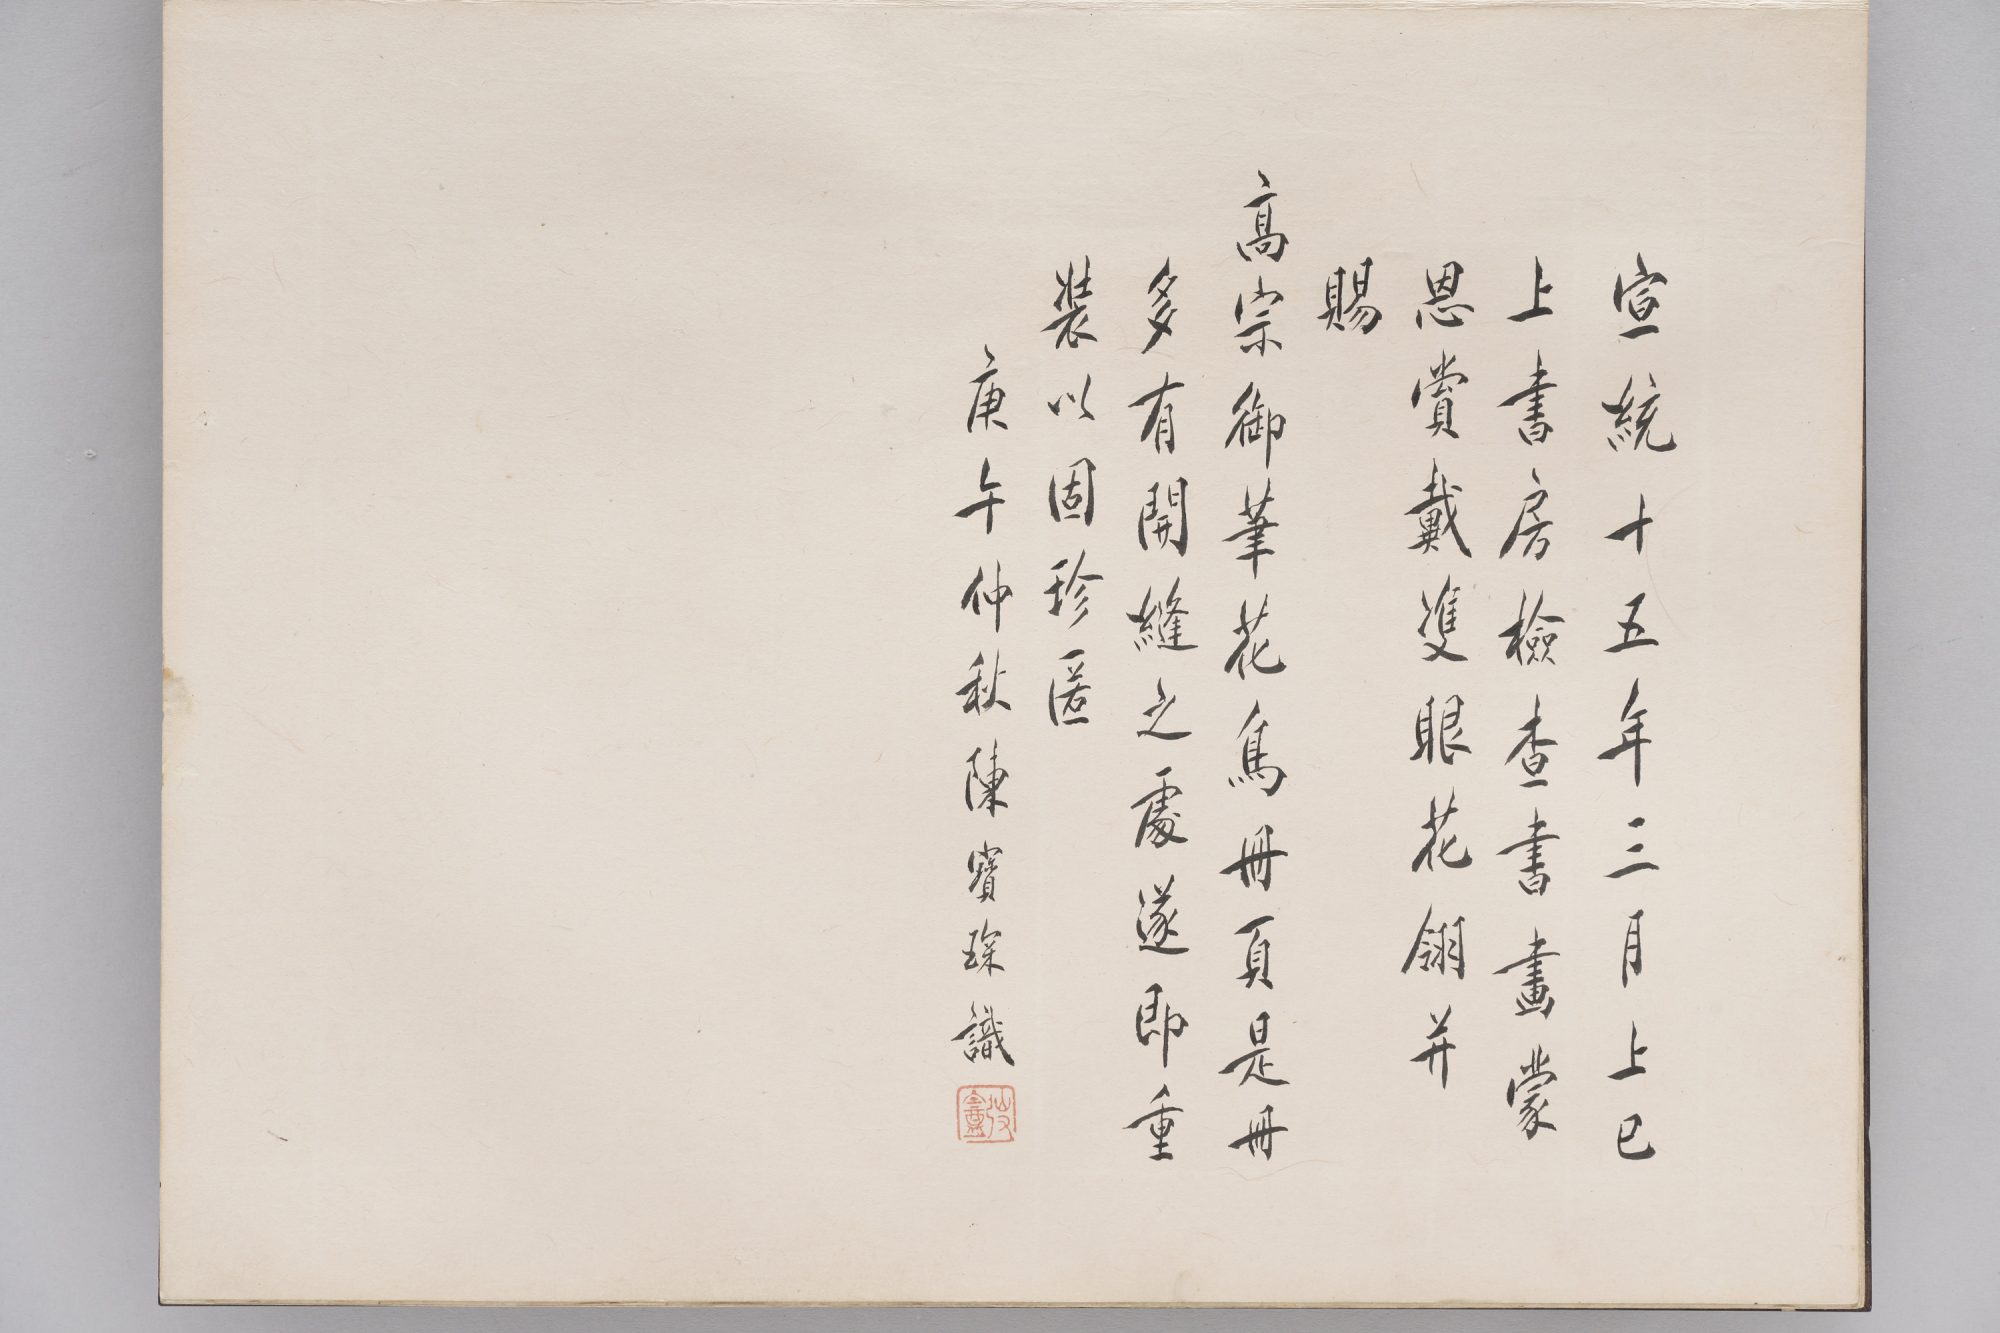 宣統十五年三月上巳
上書房檢查書畫蒙
恩賞戴雙眼花翎并
賜
高宗御筆花鳥冊頁是冊
多有開縫之處遂即重
裝以固珍匿
庚午仲秋陳寶琛識